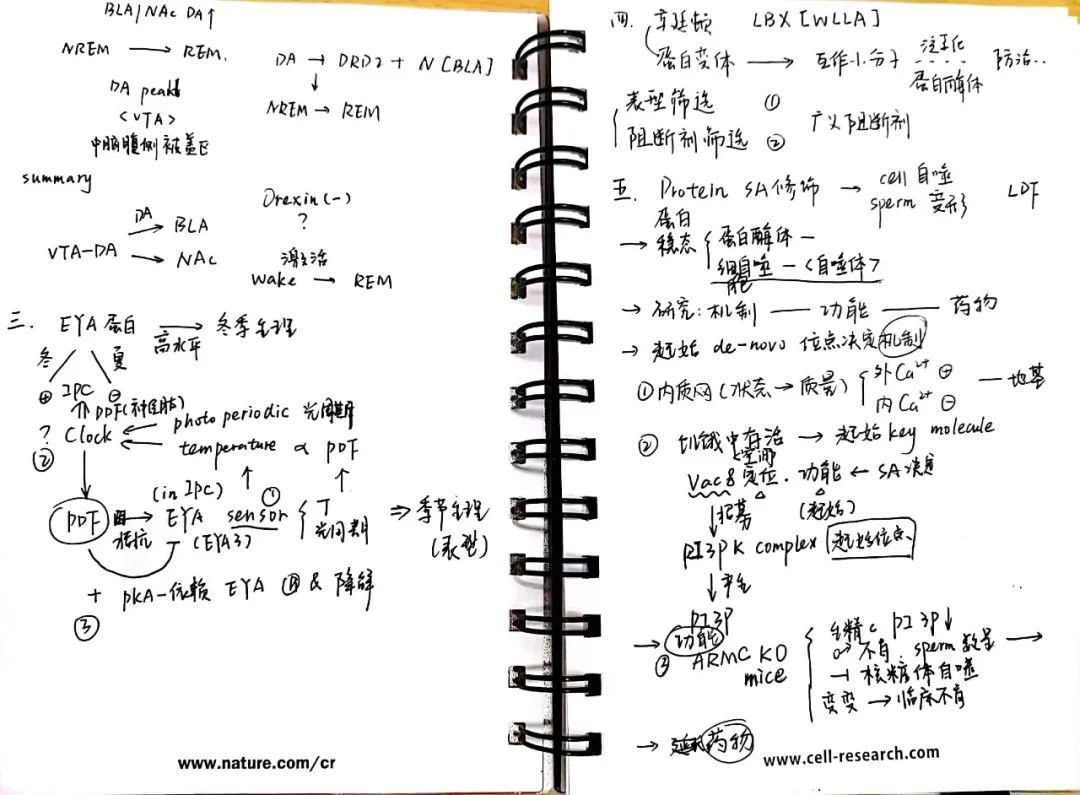 BLA/NAc DA↑
NREM → REM.
DA → DRD2 + N [BLA]
↓
NREM → REM
DA peak
<VTA>
中脑腹侧被盖区
summary
VTA-DA
DA → BLA
→ NAc
Orexin (-)
?
激活
wake → REM
三. EYA 蛋白 → 冬季生理
高水平
冬 夏
⊕ IPC ⊖
⇑ PDF(神经肽)
? Clock ← photo periodic 光周期
② ← temperature ∝ PDF
(in IPC) ↑ ① ↑
PDF → EYA sensor { T
拮抗 (EYA3) 光周期
⇒ 季节生理
(表型)
+ PKA-依赖 EYA & 降解
③
www.nature.com/cr
四. LBX [WLLA]
蛋白变体 → 互作小分子 泛素化 防治..
蛋白酶体
{ 表型筛选 ①
阻断剂筛选 ② 广义阻断剂
五. Protein SA修饰 → cell 自噬 LDF
sperm 变形
蛋白
→ 稳态 { 蛋白酶体 —
细胞自噬 — <自噬体>
→ 研究: 机制 — 功能 — 药物
→ 起始 de-novo 位点决定机制
① 内质网 (状态 → 质量) { 外Ca²⁺ ⊕ — 地基
内Ca²⁺ ⊖
② 饥饿中存活 → 起始 key molecule
空泡
Vac8 定位. 功能 ← SA决定
↓ 招募 (起始)
PI3PK complex 起始位点
↓ 产生
PI3P
→ 功能
③ ARMC KO
mice
{ 生精 c PI3P↓
♂ 不育. sperm 数量 →
⊣ 核糖体自噬
变变 → 临床不育
→ 药物
www.cell-research.com